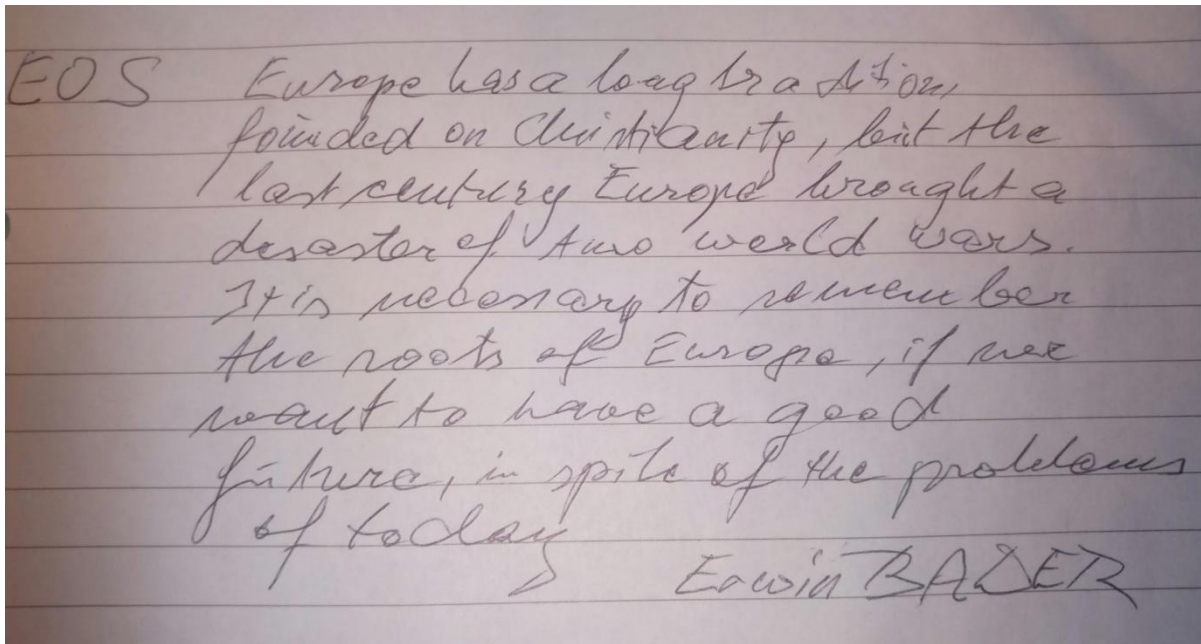 EOS Europe has a long tradition,
founded on Christianity, but the
last century Europe brought a
desaster of two world wars.
It is necessary to remember
the roots of Europe, if we
want to have a good
future, in spite of the problems
of today
Erwin BADER